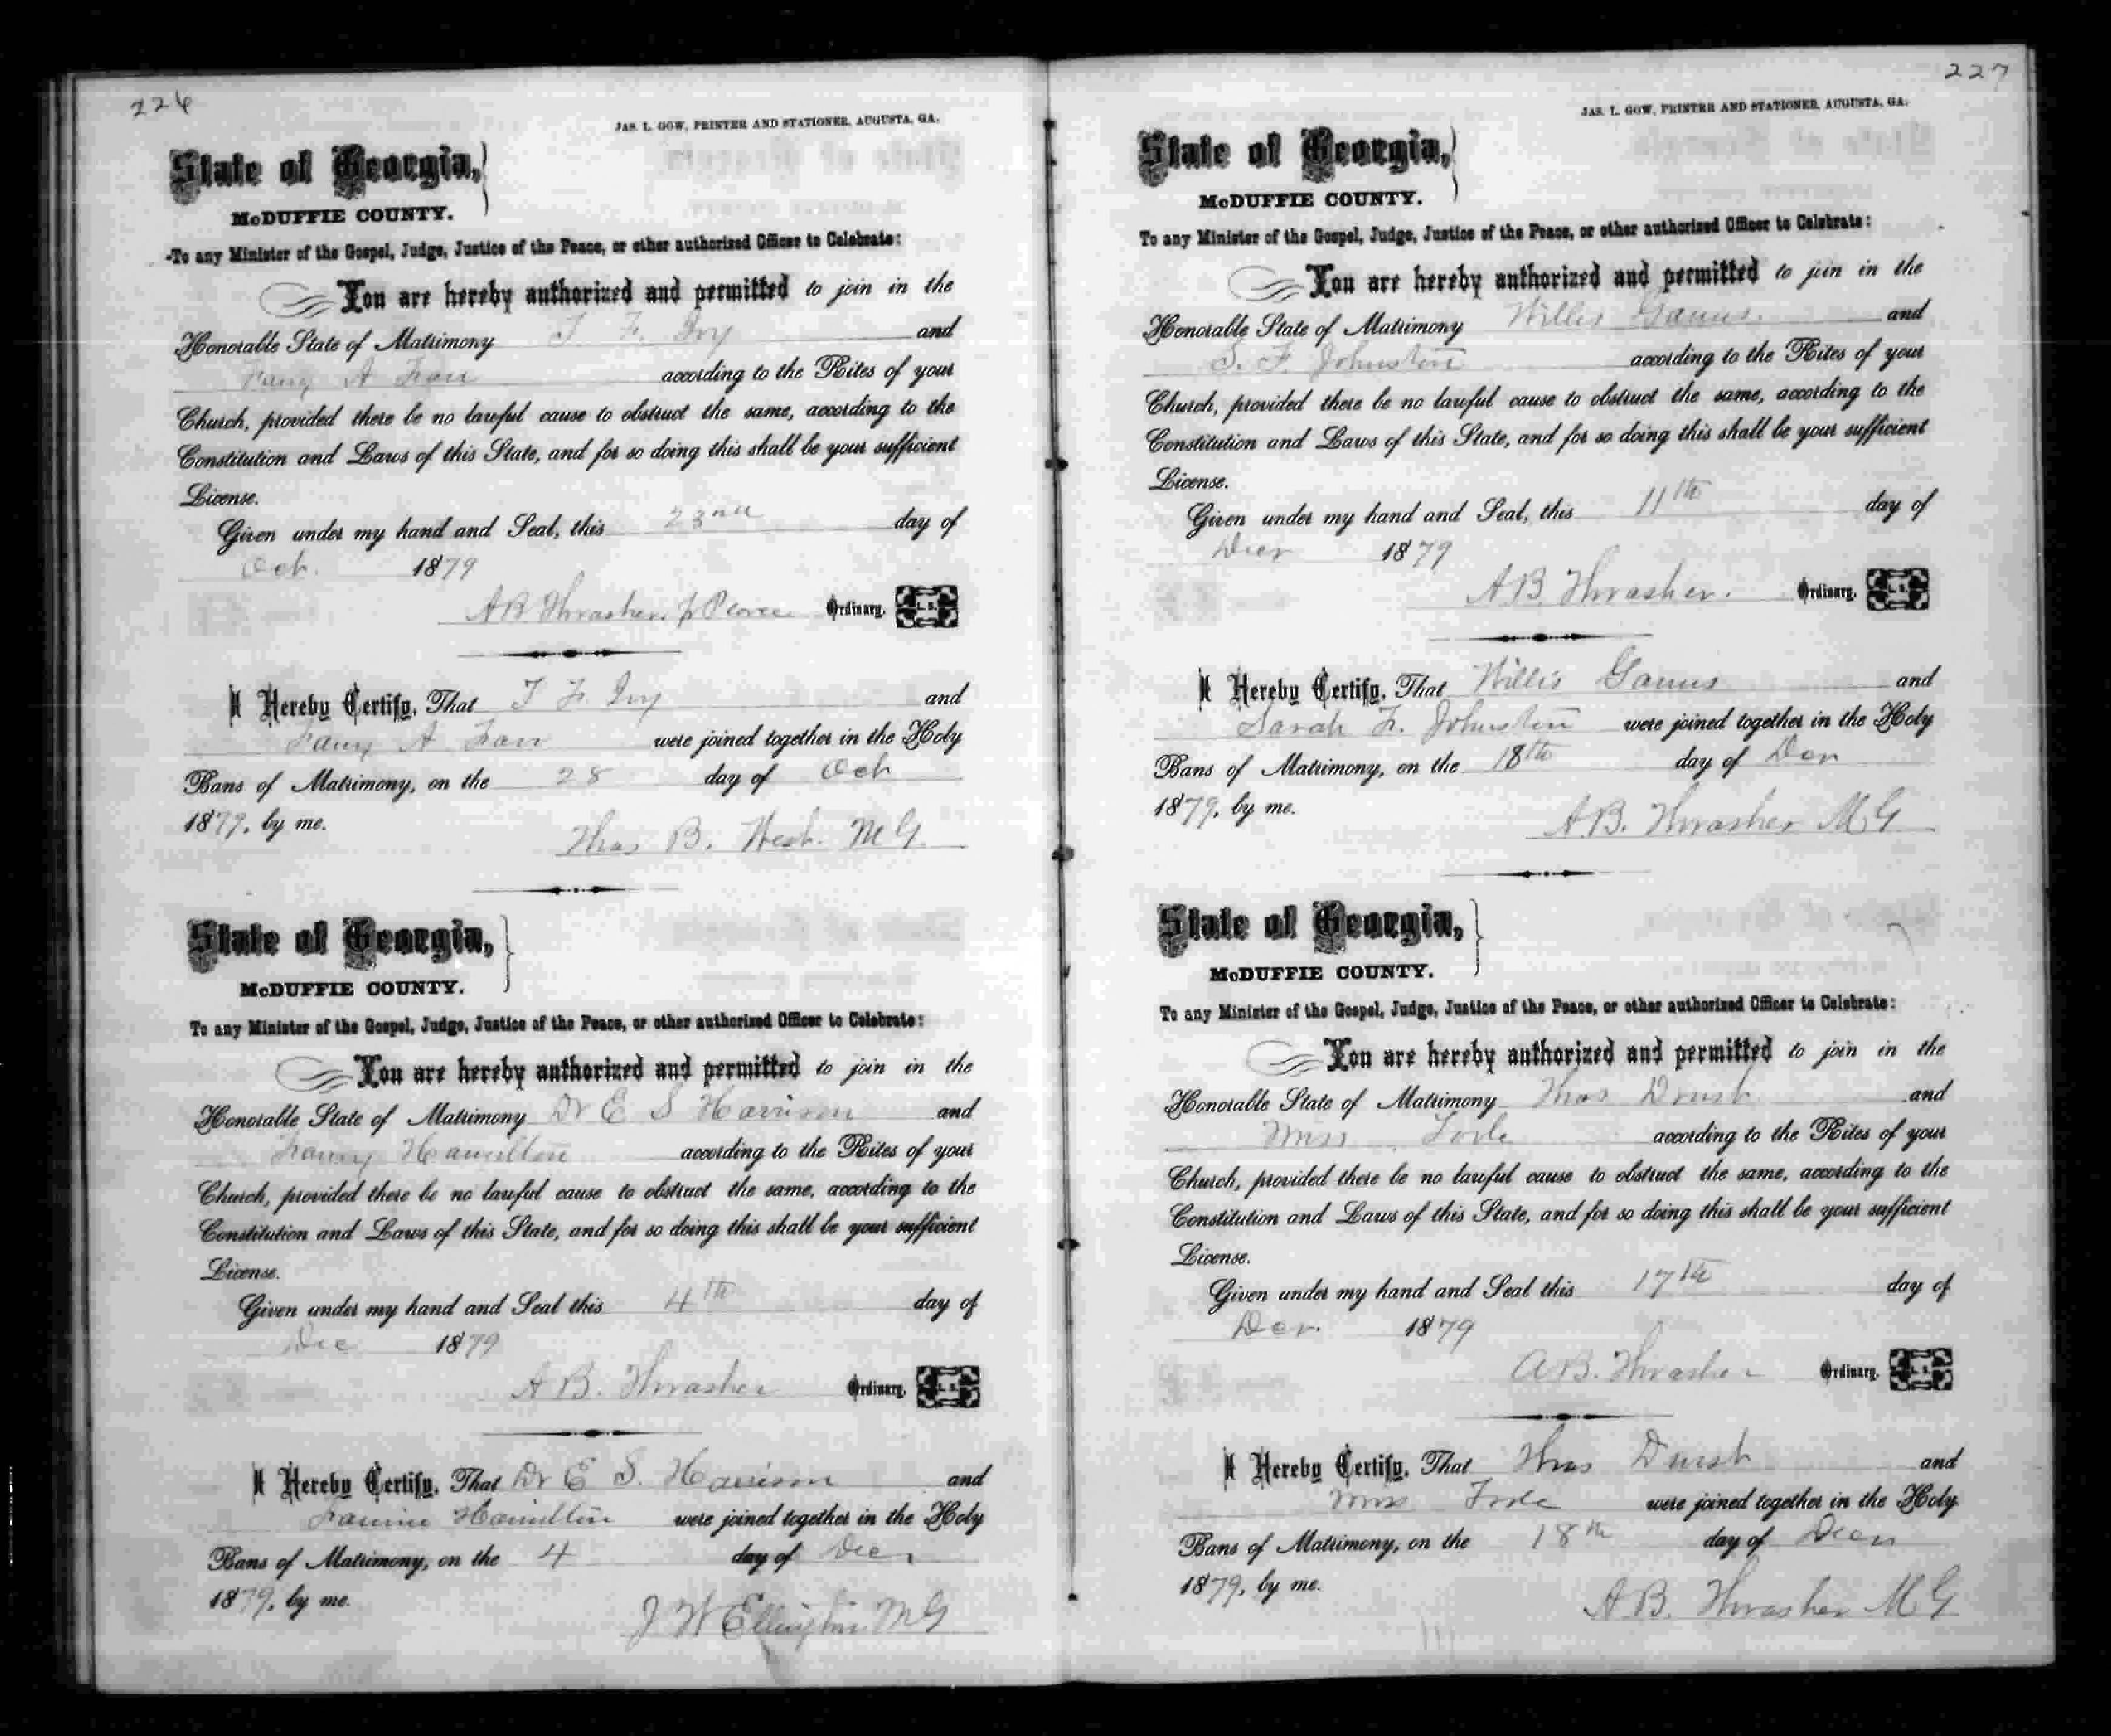 226
JAS. L. GOW, PRINTER AND STATIONER, AUGUSTA, GA.
State of Georgia,
McDUFFIE COUNTY.
To any Minister of the Gospel, Judge, Justice of the Peace, or other authorized Officer to Celebrate:
You are hereby authorized and permitted to join in the
Honorable State of Matrimony T. F. Ivy and
Fany A according to the Rites of your
Church, provided there be no lawful cause to obstruct the same, according to the
Constitution and Laws of this State, and for so doing this shall be your sufficient
License.
Given under my hand and Seal, this 23nd day of
Oct. 1879
AB Thrasher, Ordinary. L. S.
I Hereby Certify, That T F. Ivy and
Fany A were joined together in the Holy
Bans of Matrimony, on the 28 day of Oct
1879, by me.
Thos B. M G.
State of Georgia,
McDUFFIE COUNTY.
To any Minister of the Gospel, Judge, Justice of the Peace, or other authorized Officer to Celebrate:
You are hereby authorized and permitted to join in the
Honorable State of Matrimony Dr E S Harrison and
Fanny Hamilton according to the Rites of your
Church, provided there be no lawful cause to obstruct the same, according to the
Constitution and Laws of this State, and for so doing this shall be your sufficient
License.
Given under my hand and Seal this 4th day of
Dec 1879
A B. Thrasher Ordinary. L. S.
I Hereby Certify, That Dr E S. Harrison and
Fannie Hamilton were joined together in the Holy
Bans of Matrimony, on the 4 day of Dec
1879, by me.
J W Ellington M G
227
JAS. L. GOW, PRINTER AND STATIONER, AUGUSTA, GA.
State of Georgia,
McDUFFIE COUNTY.
To any Minister of the Gospel, Judge, Justice of the Peace, or other authorized Officer to Celebrate:
You are hereby authorized and permitted to join in the
Honorable State of Matrimony Willis Ganus. and
S. F. Johnston according to the Rites of your
Church, provided there be no lawful cause to obstruct the same, according to the
Constitution and Laws of this State, and for so doing this shall be your sufficient
License.
Given under my hand and Seal, this 11th day of
Decr 1879
A.B. Thrasher. Ordinary. L. S.
I Hereby Certify, That Willis Ganus and
Sarah F. Johnston were joined together in the Holy
Bans of Matrimony, on the 18th day of Decr
1879, by me.
A.B. Thrasher M G
State of Georgia,
McDUFFIE COUNTY.
To any Minister of the Gospel, Judge, Justice of the Peace, or other authorized Officer to Celebrate:
You are hereby authorized and permitted to join in the
Honorable State of Matrimony Thos Durst and
Miss according to the Rites of your
Church, provided there be no lawful cause to obstruct the same, according to the
Constitution and Laws of this State, and for so doing this shall be your sufficient
License.
Given under my hand and Seal this 17th day of
Decr. 1879
A B. Thrasher Ordinary. L. S.
I Hereby Certify, That Thos Durst and
Miss were joined together in the Holy
Bans of Matrimony, on the 18th day of Decr
1879, by me.
A B. Thrasher M G